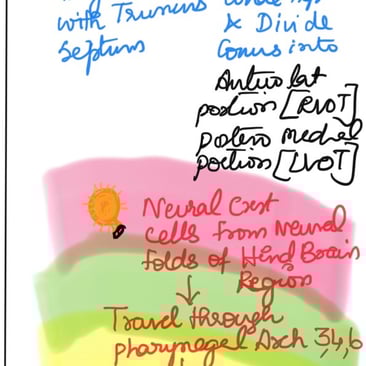 with Truncus
Septums
& Divide
Conus into
Antero lat
portion [RVOT]
Postero medial
portion [LVOT]
Neural Crest
cells from Neural
folds of Hind Brain
Region
↓
Travel through
pharyngeal Arch 3,4,6